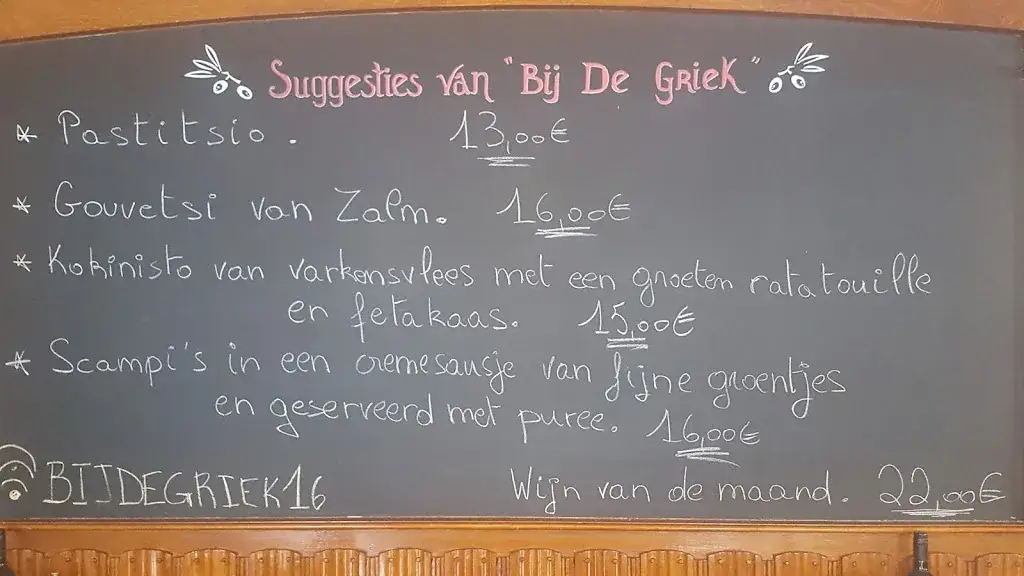 Suggesties van "Bij De Griek"
* Pastitsio. 13,00€
* Gouvetsi van Zalm. 16,00€
* Kokinisto van varkensvlees met een groeten ratatouille
en fetakaas. 15,00€
* Scampi's in een cremesausje van fijne groentjes
en geserveerd met puree. 16,00€
BIJDEGRIEK16 Wijn van de maand. 22,00€